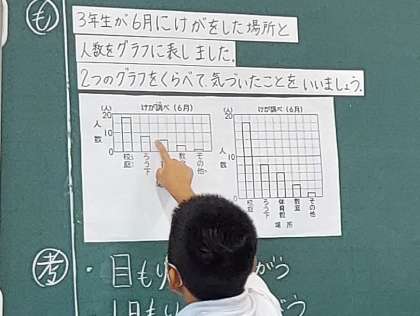 も
3年生が6月にけがをした場所と
人数をグラフに表しました。
2つのグラフをくらべて、気づいたことをいいましょう。
(人) けが調べ(6月)
人数
20
10
0
校庭
ろう下
教室
その他
(人) けが調べ(6月)
人数
20
10
0
校庭
ろう下
体育館
教室
その他
場所
考
・目もり
がう